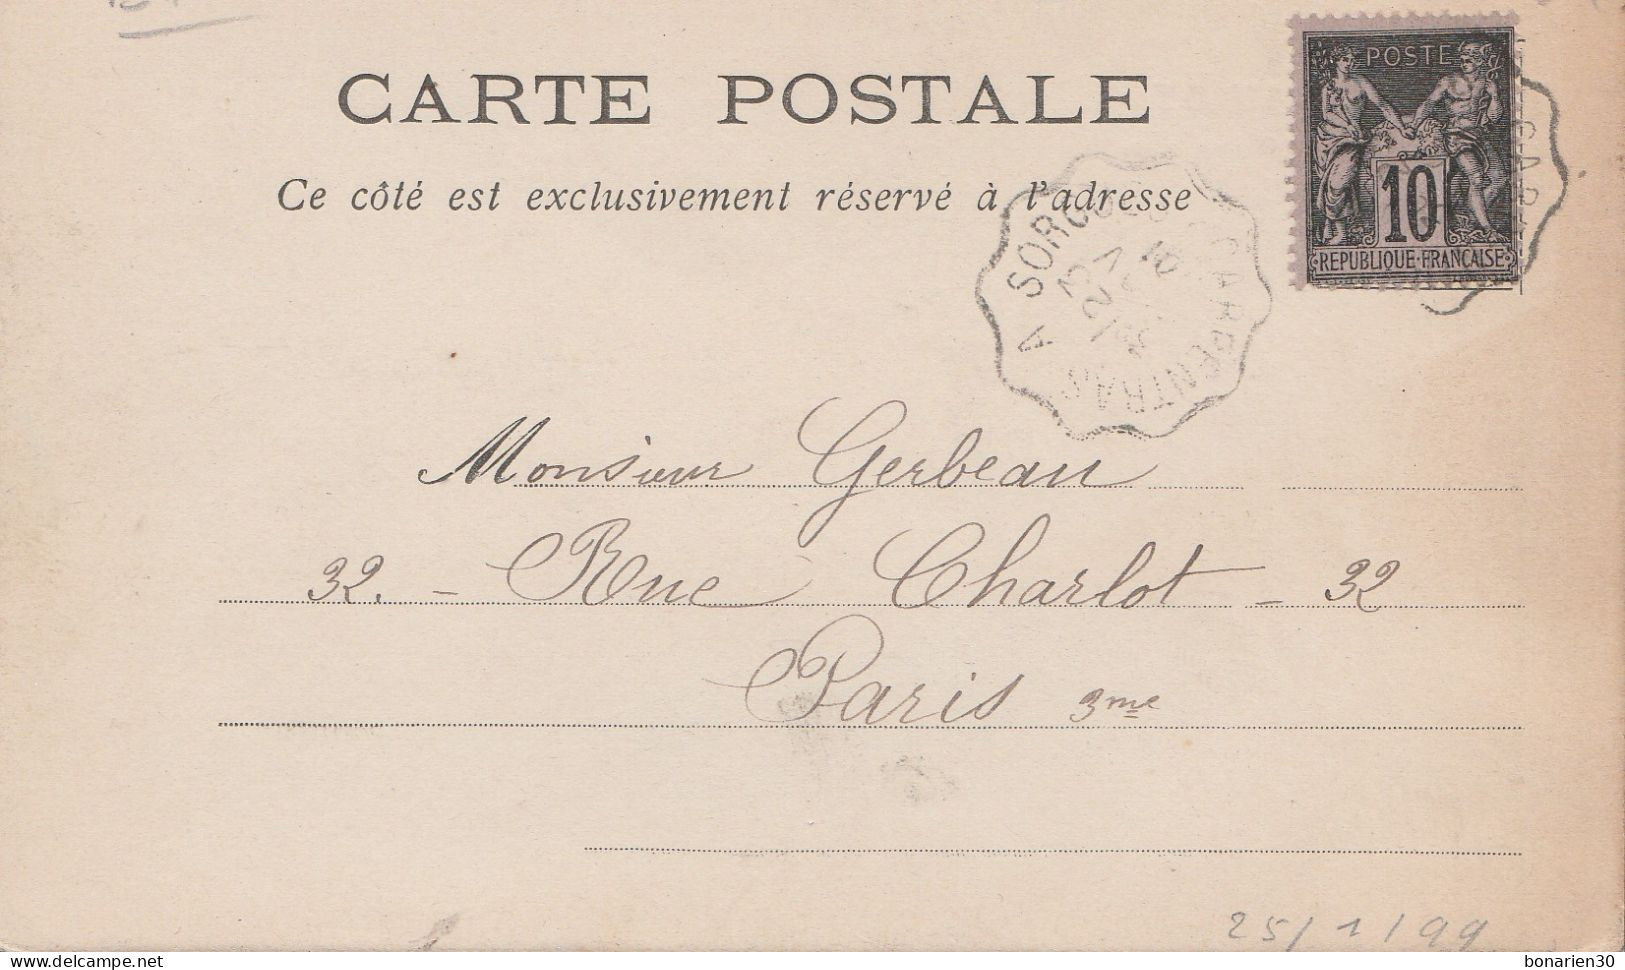 CARTE POSTALE
Ce côté est exclusivement réservé à l'adresse
POSTE
10
REPUBLIQUE FRANÇAISE
CARPENTRAS A SORGUES
CARP
Monsieur Gerbeau
32. - Rue Charlot - 32
Paris 3me
25/1/99
delcampe.net
bonarien30